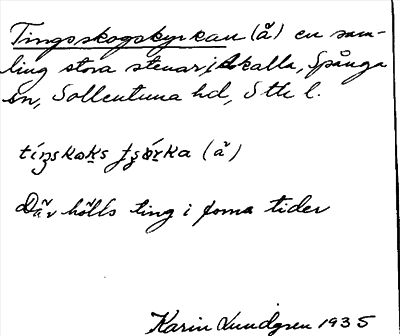 Tingsskogskyrkan (å) en sam-
ling stora stenar i Akalla, Spånga
sn, Sollentuna hd, Sthl.
(å)
Där hölls ting i forna tider
Karin Lundgren 1935